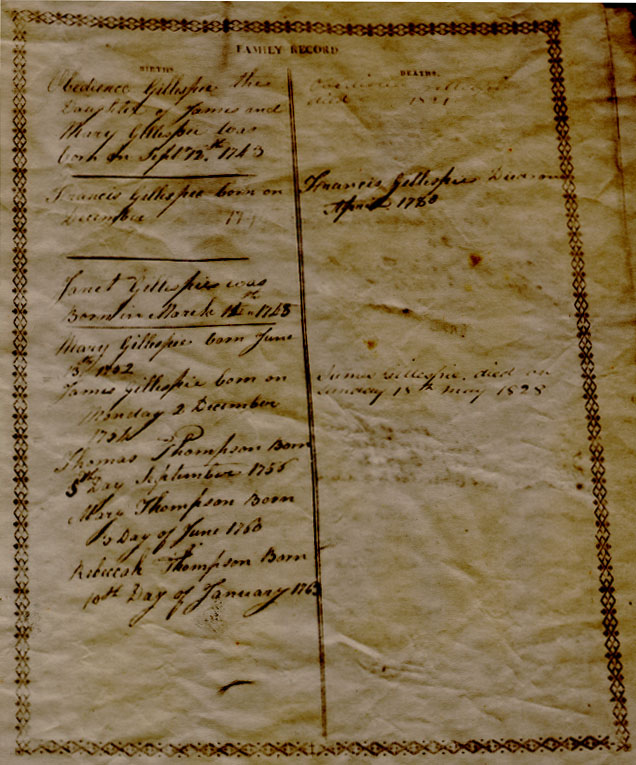 FAMILY RECORD
BIRTHS.
Obedience Gillespie the
Daughter of James and
Mary Gillespie was
born on Sept. 12th 1743
Francis Gillespie born on
December
Janet Gillespie was
Born in March 1748
Mary Gillespie born June
James Gillespie born on
Monday 2 December
Thomas Thompson Born
5th Day September 1756
Mary Thompson Born
Day of June 1760
Rebeccah Thompson Born
10th Day of January 1763
DEATHS.
died 1821
Francis Gillespie Died
April 1780
James Gillespie. died on
Sunday 18th May 1828